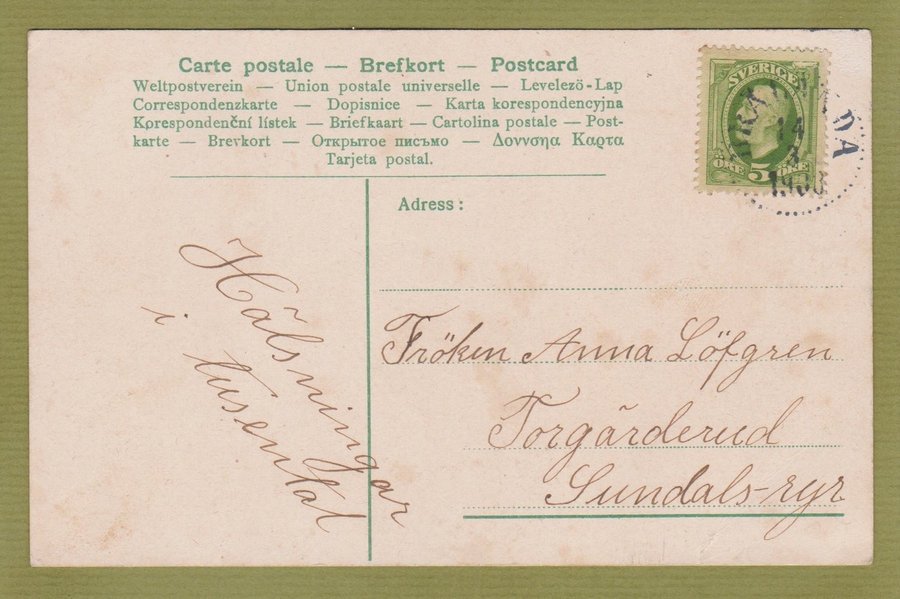 Carte postale — Brefkort — Postcard
Weltpostverein — Union postale universelle — Levelezö-Lap
Correspondenzkarte — Dopisnice — Karta korespondencyjna
Korespondenční lístek — Briefkaart — Cartolina postale — Post-
karte — Brevkort — Открытое письмо — Δοννσηα Καρτα
Tarjeta postal.
SVERIGE
ÖRE 5 ÖRE
14
Adress:
Hälsningar
i tusental
Fröken Anna Löfgren
Torgärderud
Sundals-ryr